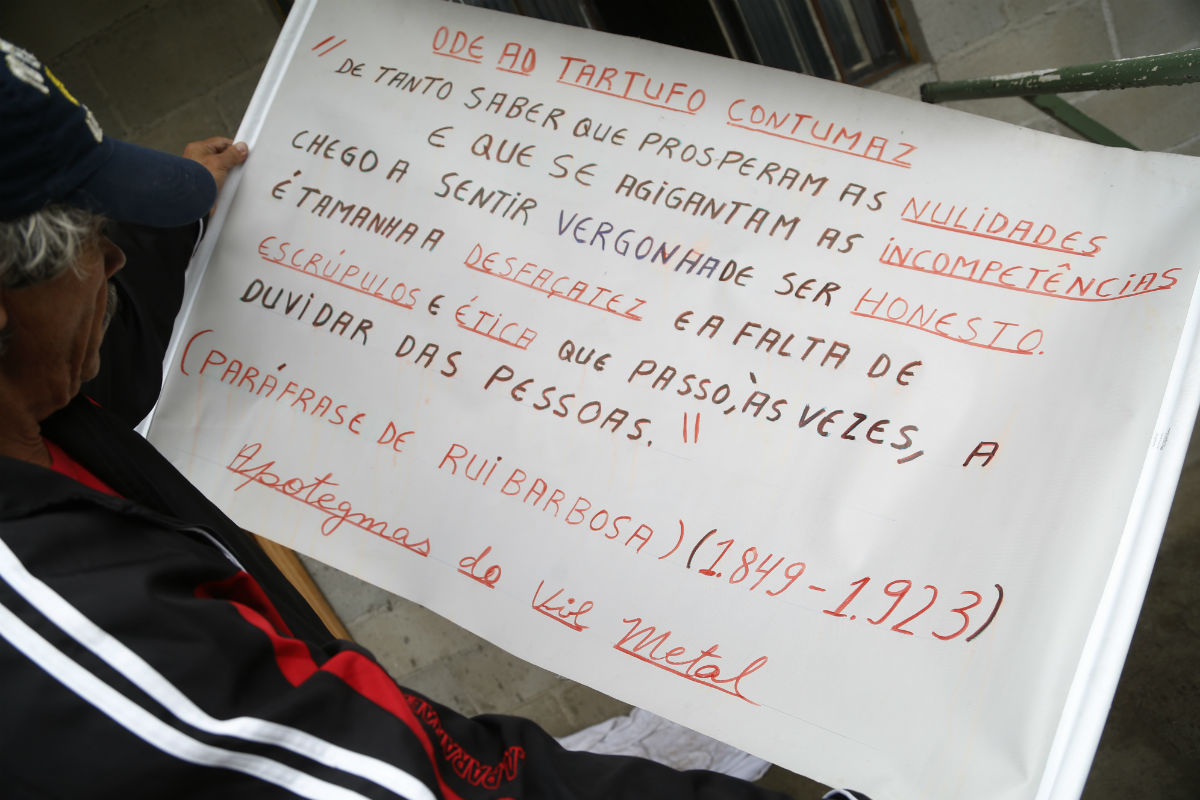 ODE AO TARTUFO CONTUMAZ
"DE TANTO SABER QUE PROSPERAM AS NULIDADES
E QUE SE AGIGANTAM AS INCOMPETÊNCIAS
CHEGO A SENTIR VERGONHA DE SER HONESTO.
É TAMANHA A DESFAÇATEZ E A FALTA DE
ESCRÚPULOS E ÉTICA QUE PASSO, ÀS VEZES, A
DUVIDAR DAS PESSOAS."
(PARÁFRASE DE RUI BARBOSA) (1.849-1.923)
Apotegmas do Vil Metal